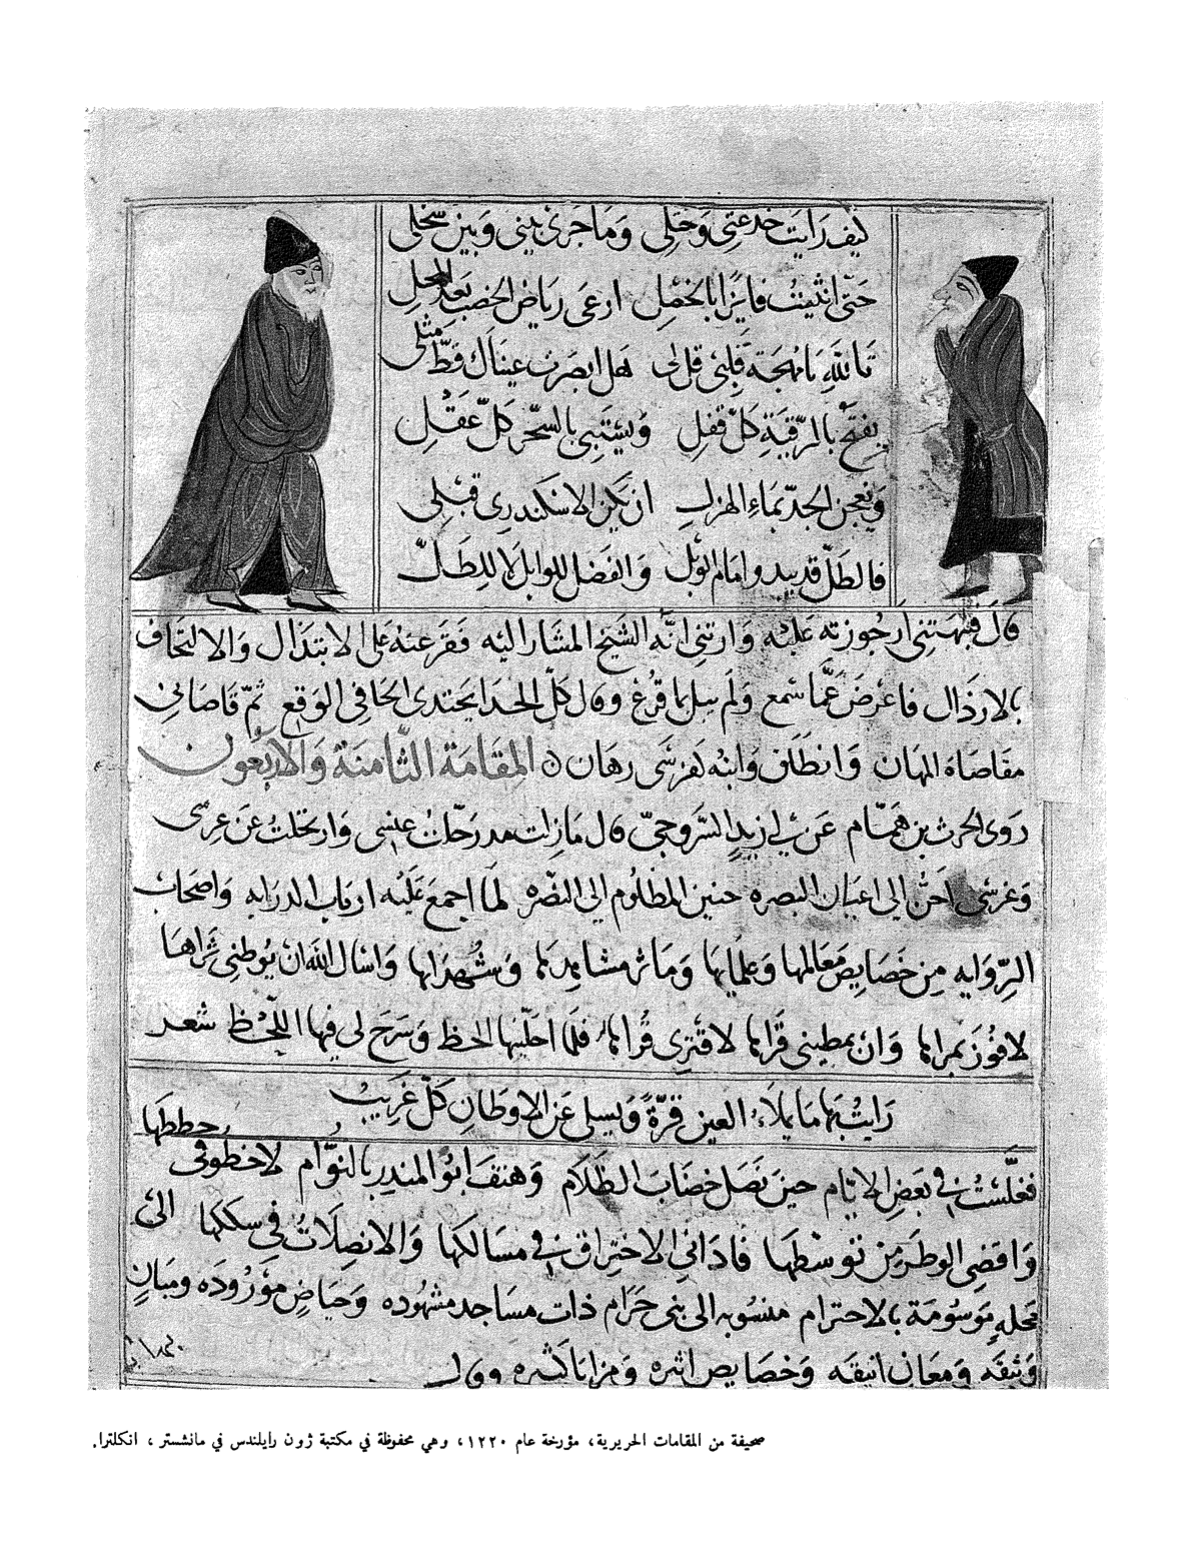 كيف رايت خدعتي وختلي وما جرى بيني وبين سخلي
حتى انثنيت فايزا بالخصل ارعى رياض الخصب بعد المحل
تالله يا مهجة قلبي قل لى هل ابصرت عيناك قط مثلى
يفتح بالرقية كل قفل ويستبي بالسحر كل عقل
ويعجن الجد بماء الهزل ان يكن الاسكندرى قبلى
فالطل قد يبدو امام الوبل والفضل للوابل لا للطل
قال فنبهتني ارجوزته عليه وارتني انه الشيخ المشار اليه فقرعته على الابتذال والالتحاق
بالارذال فاعرض عما سمع ولم يبل بما قرع وقال كل الحذا يحتذى الحافي الوقع ثم قاصاني
مقاصاة المهان وانطلق وابنه كفرسى رهان المقامة الثامنة والاربعون
روى الحرث بن همام عن ابي زيد السروجي قال ما زلت مذ رحلت عنسى وارتحلت عن عرسى
وغرسى احن الى اعيان البصره حنين المظلوم الى النصره لما اجمع عليه ارباب الدرايه واصحاب
الروايه من خصايص معالمها وعلمايها وماثر مشاهدها وشهدايها واسال الله ان يوطني ثراها
لافوز بمراها وان يمطيني قراها لاقترى قراها فلما احلنيها الحظ وسرح لي فيها اللحظ شعر
رايت بها ما يملاء العين قرة ويسلي عن الاوطان كل غريب
فغلست في بعض الايام حين نصل خضاب الظلام وهتف ابو المنذر بالنوام لاخطو في خططها
واقضى الوطر من توسطها فاداني الاختراق في مسالكها والانصلات في سككها الى
محله موسومة بالاحترام منسوبه الى بني حرام ذات مساجد مشهوده وحياض موروده ومبان
وثيقه ومعان انيقه وخصايص اثيره ومزايا كثيره
صحيفة من المقامات الحريرية، مؤرخة عام ١٢٢٠، وهي محفوظة في مكتبة ژون رايلندس في مانشستر ، انكلترا.